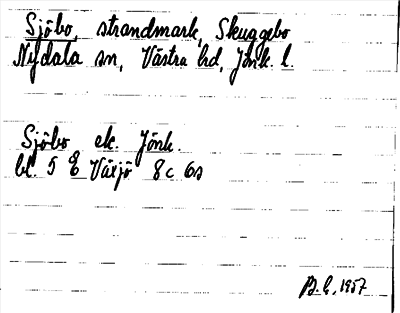 Sjöbo, strandmark, Skuggebo
Nydala sn, Västra hd, Jönk. l.
Sjöbo ek. Jönk.
bl. 5 E Växjö 8c 6s
B.L. 1957